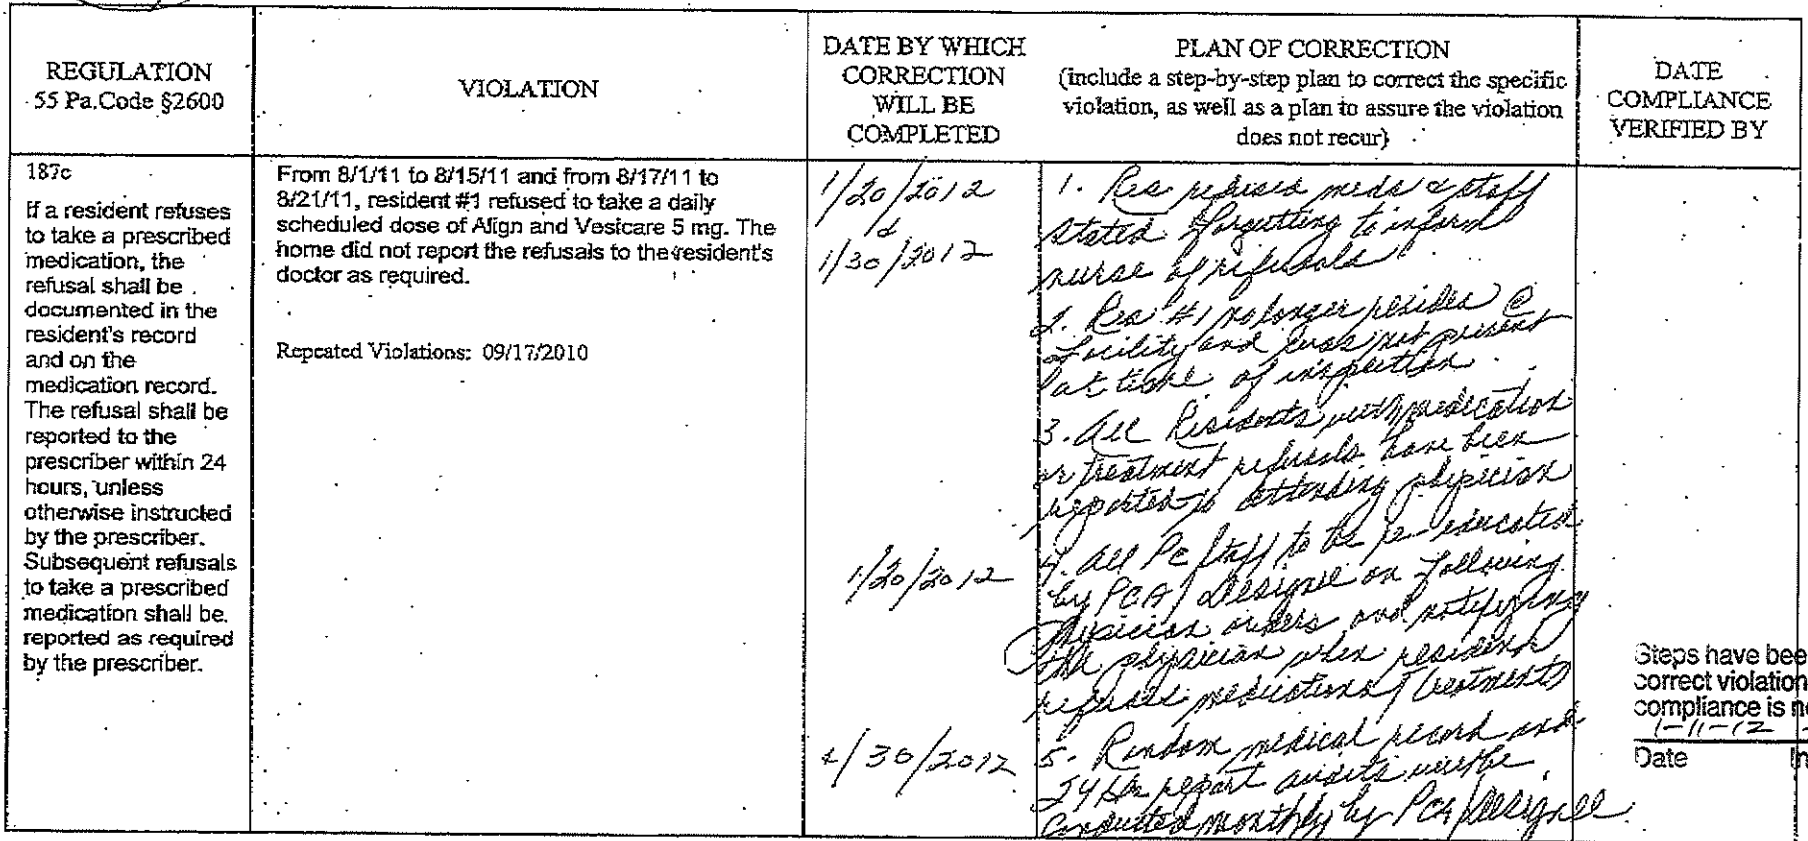 REGULATION
55 Pa.Code §2600
VIOLATION
DATE BY WHICH
CORRECTION
WILL BE
COMPLETED
PLAN OF CORRECTION
(include a step-by-step plan to correct the specific
violation, as well as a plan to assure the violation
does not recur)
DATE
COMPLIANCE
VERIFIED BY
187c
If a resident refuses
to take a prescribed
medication, the
refusal shall be
documented in the
resident's record
and on the
medication record.
The refusal shall be
reported to the
prescriber within 24
hours, unless
otherwise instructed
by the prescriber.
Subsequent refusals
to take a prescribed
medication shall be
reported as required
by the prescriber.
From 8/1/11 to 8/15/11 and from 8/17/11 to
8/21/11, resident #1 refused to take a daily
scheduled dose of Align and Vesicare 5 mg. The
home did not report the refusals to the resident's
doctor as required.
Repeated Violations: 09/17/2010
1/20/2012
1/30/2012
1/20/2012
1/30/2012
1. Res refused meds & staff
stated forgetting to inform
nurse of refusals
2. Res #1 no longer resides @
facility and was not present
at time of inspection.
3. All Residents with medication
or treatment refusals have been
reported to attending physician
4. All PC staff to be re educated
by PCA/designee on following
physician orders and notifying
the physician when resident
refuses medications/treatments
5. Random medical record and
24 hr report audits will be
conducted monthly by PCA/designee.
Steps have bee
correct violation
compliance is n
1-11-12
Date In